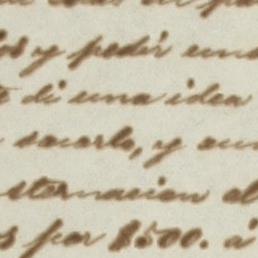 y pedir una
di una idea
sacarlo, y aun
sternacion al
s por $500. á